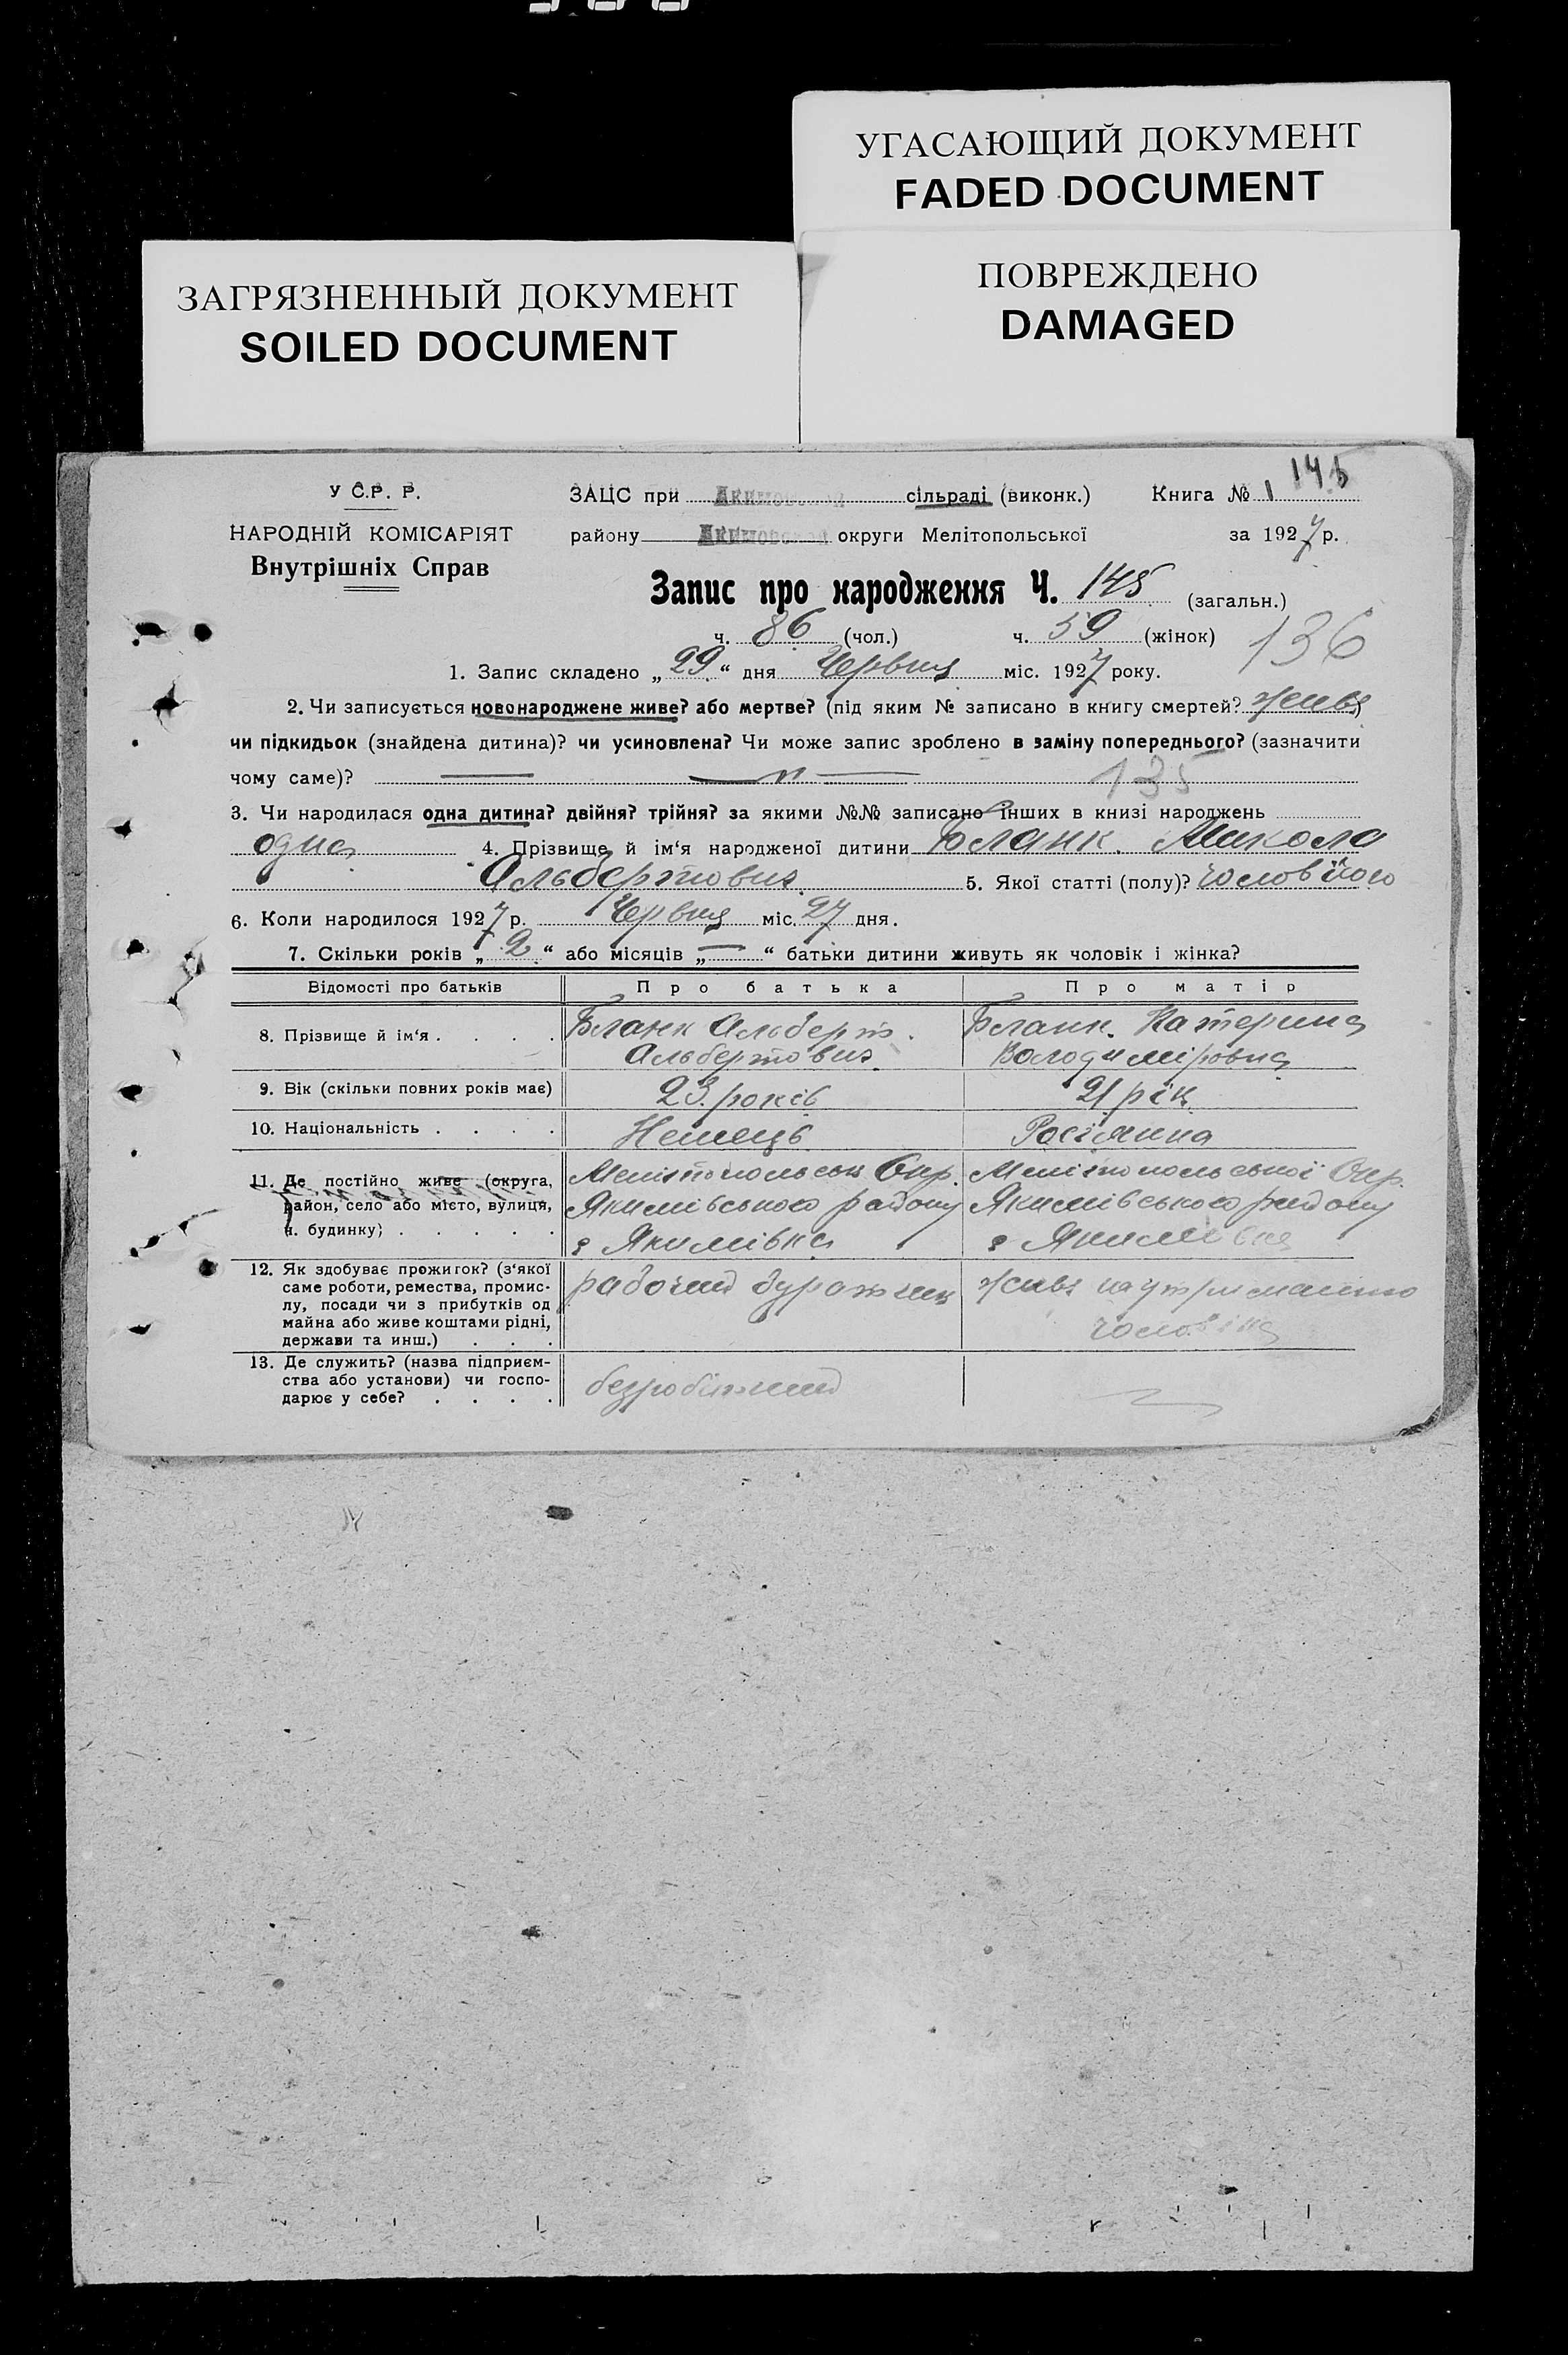 УГАСАЮЩИЙ ДОКУМЕНТ
FADED DOCUMENT
ЗАГРЯЗНЕННЫЙ ДОКУМЕНТ
SOILED DOCUMENT
ПОВРЕЖДЕНО
DAMAGED
145
У С.Р. Р.
ЗАЦС при Акимовской сільраді (виконк.) Книга № 1
НАРОДНІЙ КОМІСАРІЯТ
Внутрішніх Справ
району Акимовской округи Мелітопольської за 1927 р.
Запис про народження Ч. 145 (загальн.)
ч. 86 (чол.) ч. 59 (жінок)
136
1. Запис складено „29“ дня Червця міс. 1927 року.
2. Чи записується новонароджене живе? або мертве? (під яким № записано в книгу смертей? живе)
чи підкидьок (знайдена дитина)? чи усиновлена? Чи може запис зроблено в заміну попереднього? (зазначити
чому саме)? — — " —
135
3. Чи народилася одна дитина? двійня? трійня? за якими №№ записано інших в книзі народжень
одна 4. Прізвище й ім‘я народженої дитини Бланк. Микола
Альбертович 5. Якої статті (полу)? чоловічого
6. Коли народилося 1927 р. Червця міс. 27 дня.
7. Скільки років „2“ або місяців „—“ батьки дитини живуть як чоловік і жінка?
Відомості про батьків Про батька Про матір
8. Прізвище й ім‘я . . . . Бланк Альберт. Бланк. Катерина
Альбертович Володимировна
9. Вік (скільки повних років має) 23 років 21 рік
10. Національність . . . . Немець Росіянина
11. Де постійно живе (округа, Мелітопольськ Окр. Мелітопольської Окр.
район, село або місто, вулиця, Якимівського району Якимівського району
ч. будинку) . . . . . с Якимівка с Якимівка
12. Як здобуває прожиток? (з‘якої рабочий живе на утриманню
саме роботи, ремества, промис-
лу, посади чи з прибутків од чоловіка
майна або живе коштами рідні,
держави та инш.) . . .
13. Де служить? (назва підприєм-
ства або установи) чи госпо- безробітний
дарює у себе? . . . .